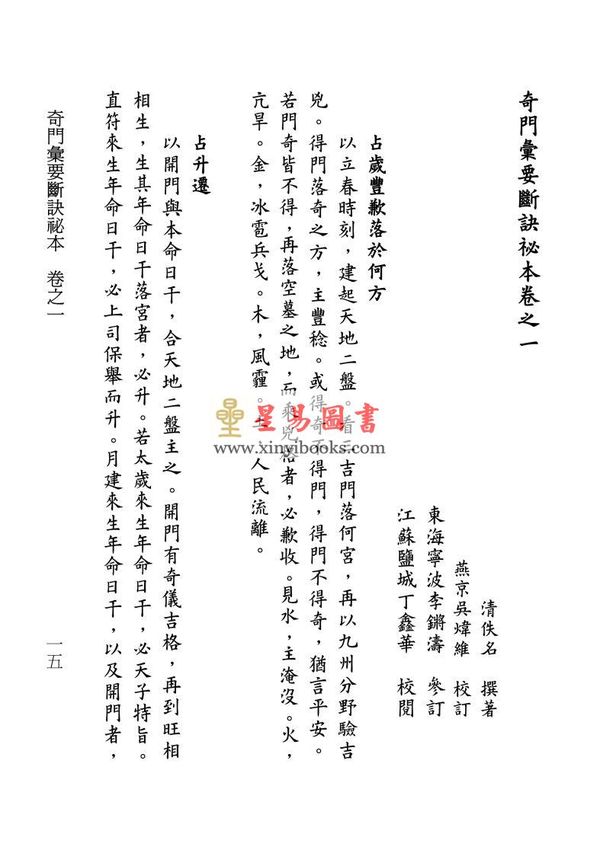 奇門彙要斷訣祕本卷之一
清佚名　撰著
燕京吳煒維　校訂
東海寧波李鏘濤　參訂
江蘇鹽城丁鑫華　校閱
占歲豐歉落於何方
以立春時刻，建起天地二盤。看三吉門落何宮，再以九州分野驗吉
兇。得門落奇之方，主豐稔。或得奇不得門，得門不得奇，猶言平安。
若門奇皆不得，再落空墓之地，而乘兇格者，必歉收。見水，主淹沒。火，
亢旱。金，冰雹兵戈。木，風霾。土，人民流離。
占升遷
以開門與本命日干，合天地二盤主之。開門有奇儀吉格，再到旺相
相生，生其年命日干落宮者，必升。若太歲來生年命日干，必天子特旨。
直符來生年命日干，必上司保舉而升。月建來生年命日干，以及開門者，
奇門彙要斷訣祕本　卷之一
一五
星易圖書
www.xinyibooks.com